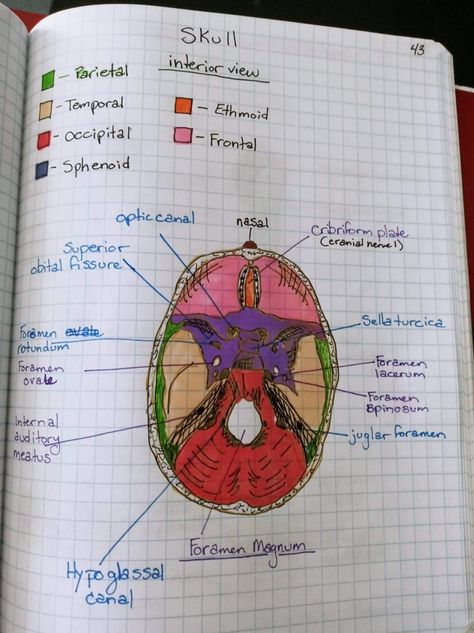 Skull
43
interior view
- Parietal
- Temporal
- Occipital
- Sphenoid
- Ethmoid
- Frontal
optic canal
nasal
cribriform plate
(cranial nerve 1)
Superior
obital fissure
Foramen ovate
rotundum
Sella turcica
Foramen
ovate
Foramen
lacerum
Foramen
Spinosum
Internal
auditory
meatus
juglar foramen
Foramen Magnum
Hypoglassal
canal